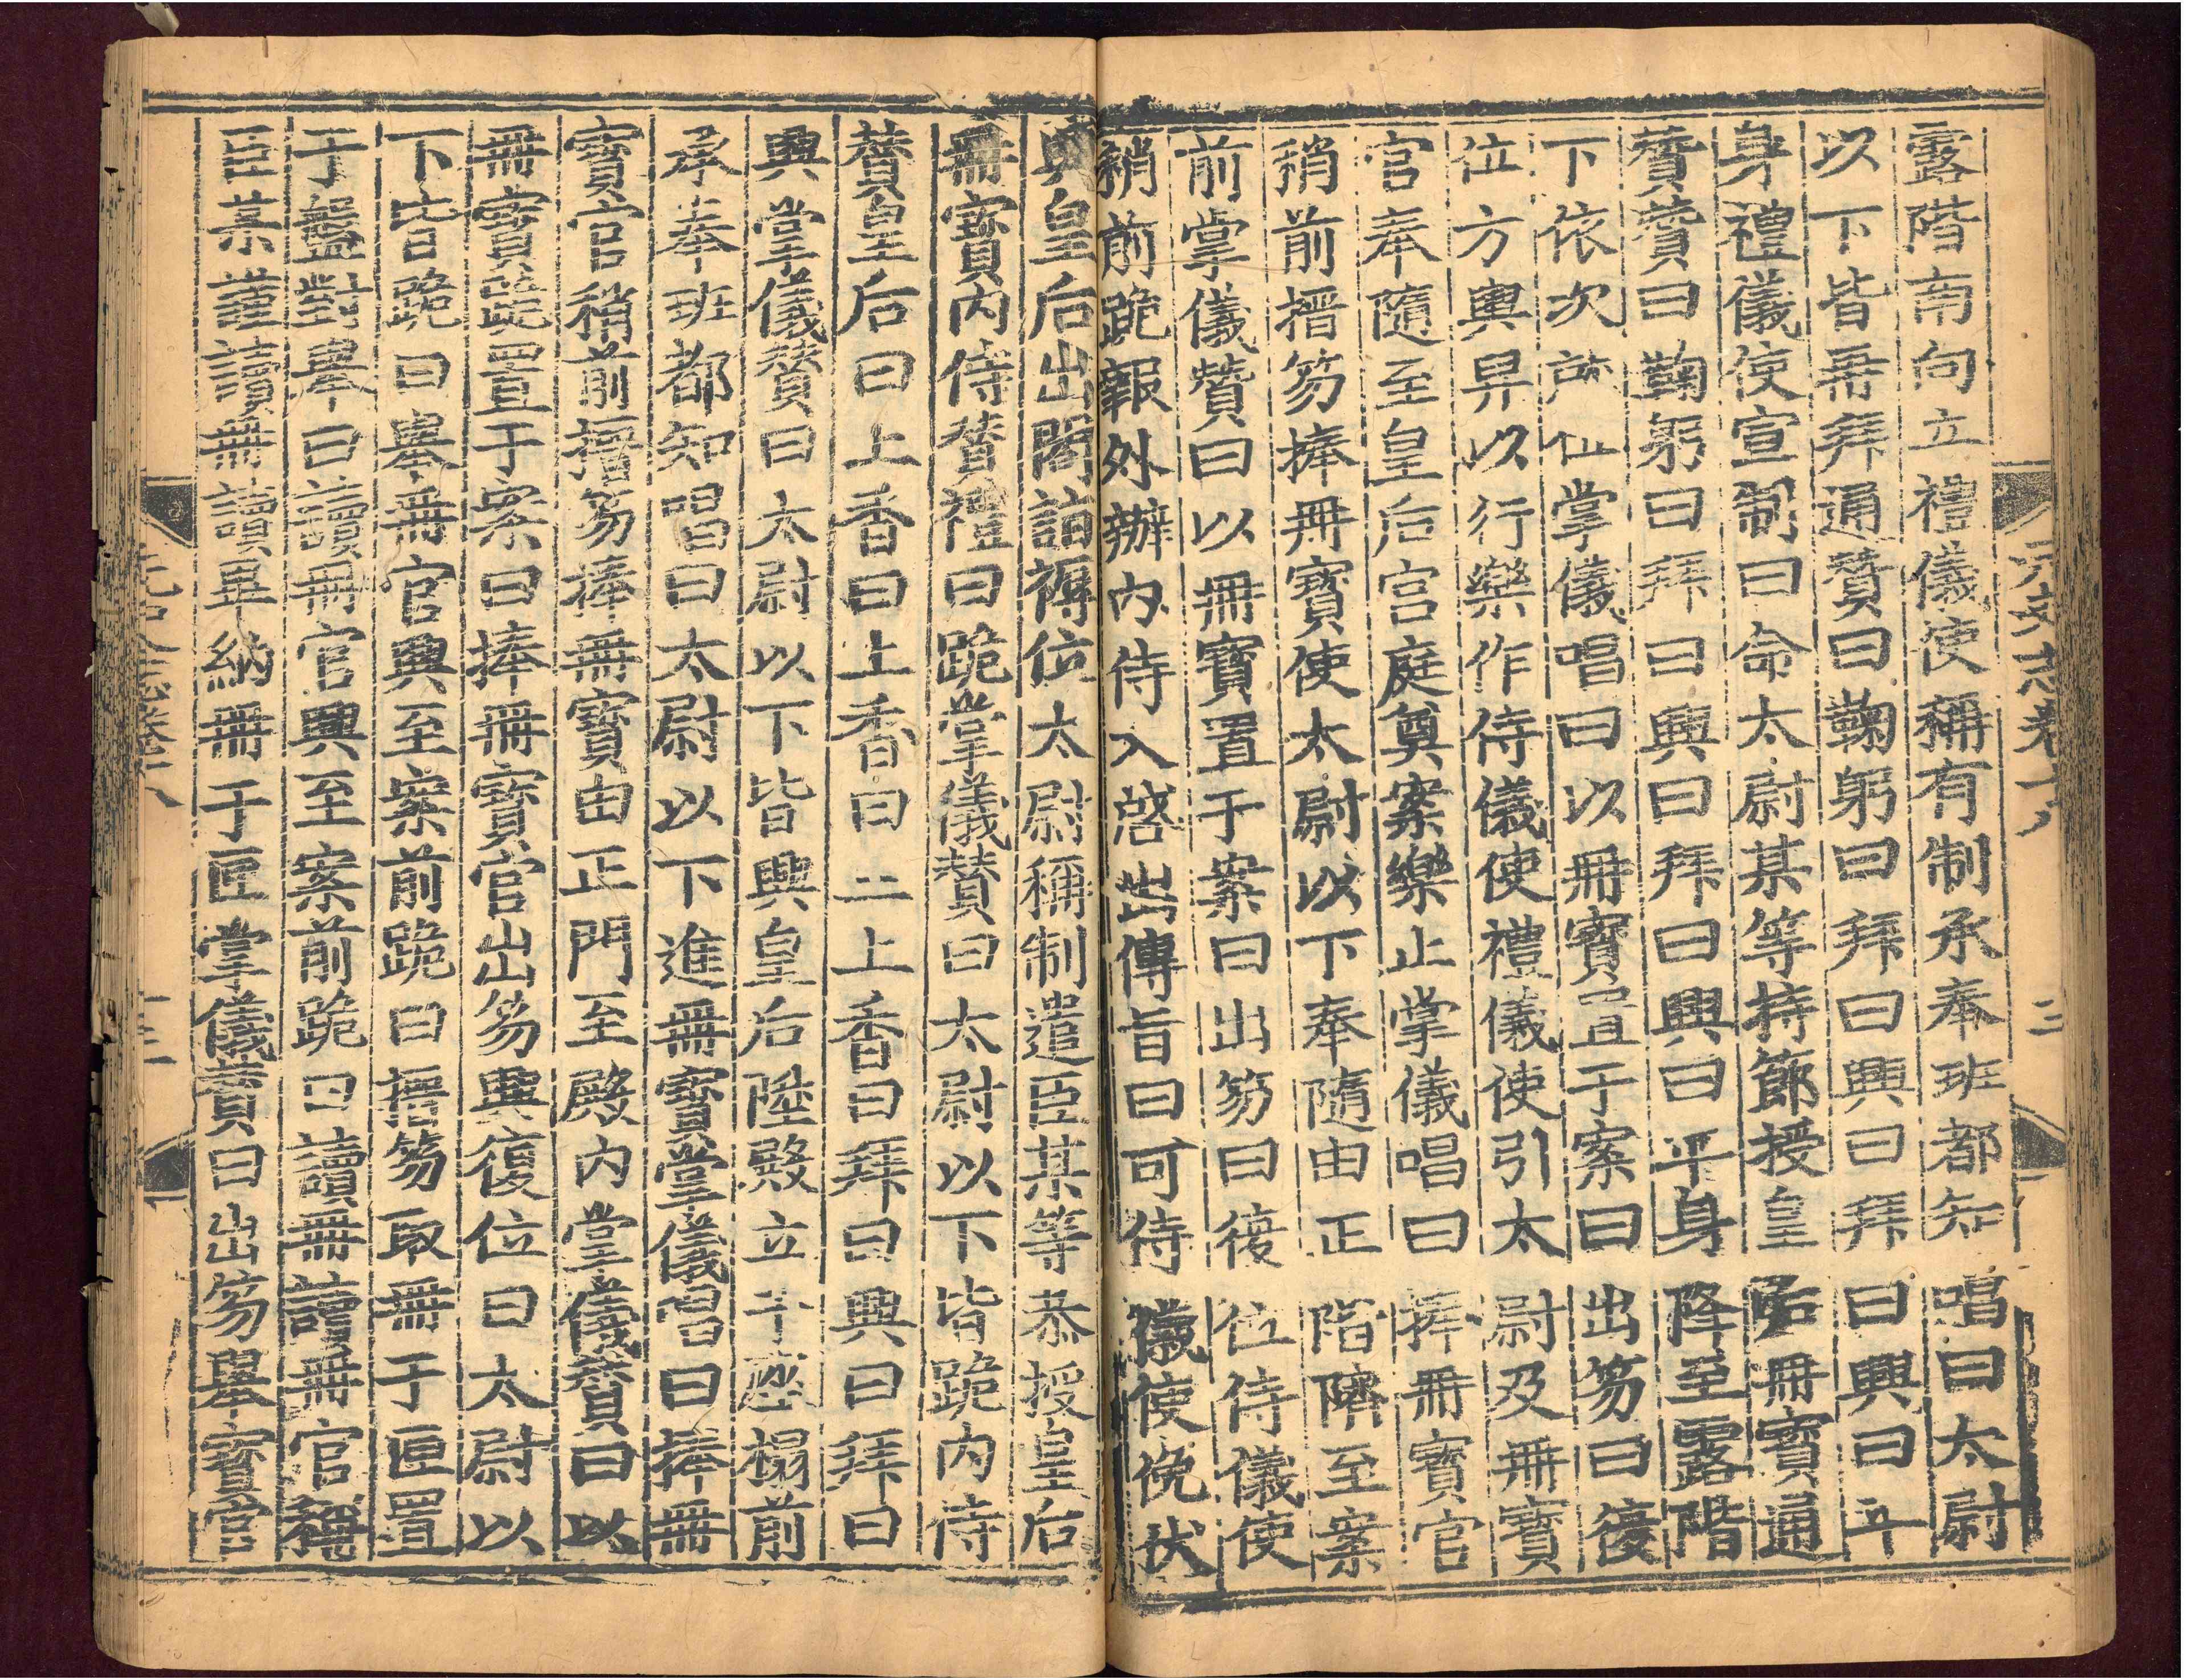 露階南向立禮儀使稱有制承奉班都知唱曰太尉
以下皆再拜通贊曰鞠躬曰拜曰興曰拜曰興曰平
身禮儀使宣制曰命太尉某等持節授皇后冊寶通
贊贊曰鞠躬曰拜曰興曰拜曰興曰平身降至露階
下依次㫁仙掌儀唱曰以冊寶置于案曰出笏曰復
位方輿舁以行樂作侍儀使禮儀使引太尉及冊寶
官奉隨至皇后宮庭奠案樂止掌儀唱曰捧冊寶官
稍前搢笏捧冊寶使太尉以下奉隨由正階隮至案
前掌儀贊曰以冊寶置于案曰出笏曰復位侍儀使
稍前跪報外辦內侍入啓出傳旨曰可侍儀使俛伏
興皇后出閤詣褥位太尉稱制遣臣某等恭授皇后
冊寶內侍贊禮曰跪掌儀贊曰太尉以下皆跪內侍
贊皇后曰上香曰上香曰三上香曰拜曰興曰拜曰
興掌儀贊曰太尉以下皆興皇后陞殿立于座榻前
承奉班都知唱曰太尉以下進冊寶掌儀唱曰捧冊
寶官稍前搢笏捧冊寶由正門至殿內掌儀贊曰以
冊寶跪置于案曰捧冊寶官出笏興復位曰太尉以
下皆跪曰舉冊官興至案前跪曰搢笏取冊于匣置
于盤對舉曰讀冊官興至案前跪曰讀冊讀冊官稱
臣某謹讀冊讀畢納冊于匣掌儀贊曰出笏舉寶官